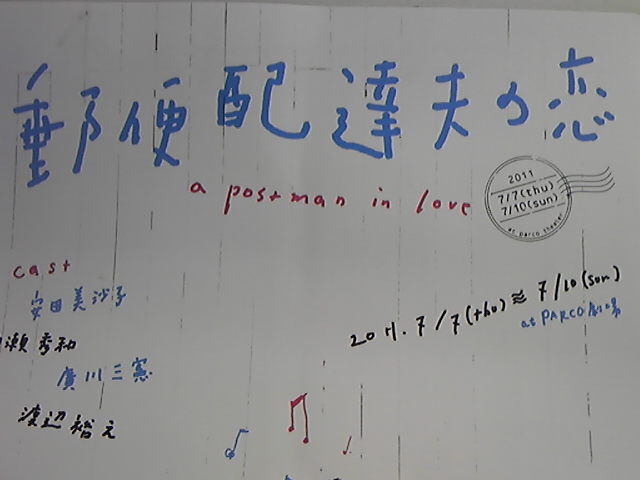 郵便配達夫の恋
a postman in love
2011
7/7(thu)
7/10(sun)
at parco theater
cast
安田美沙子
瀬秀和
廣川三憲
渡辺裕之
2011. 7/7(thu) ≈ 7/10(sun)
at PARCO劇場